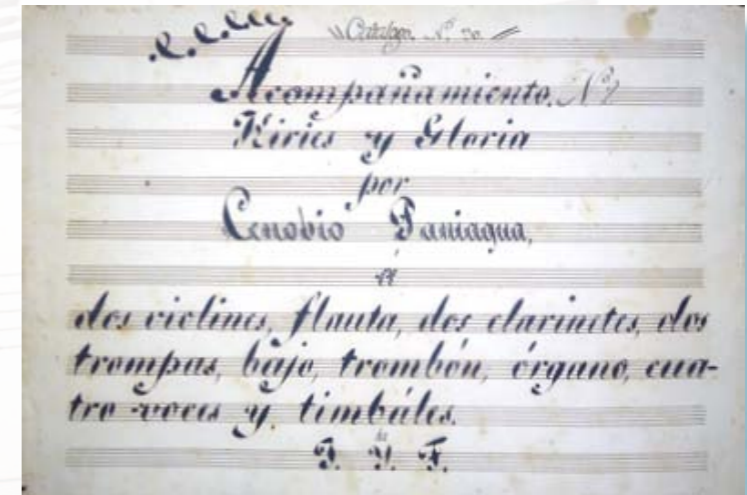 Catálogo. Nº. 70.
Acompañamiento. Nº
Kiries y Gloria
por
Cenobio Paniagua,
á
dos violines, flauta, dos clarinetes, dos
trompas, bajo, trombón, órgano, cua-
tro voces y timbáles.
de